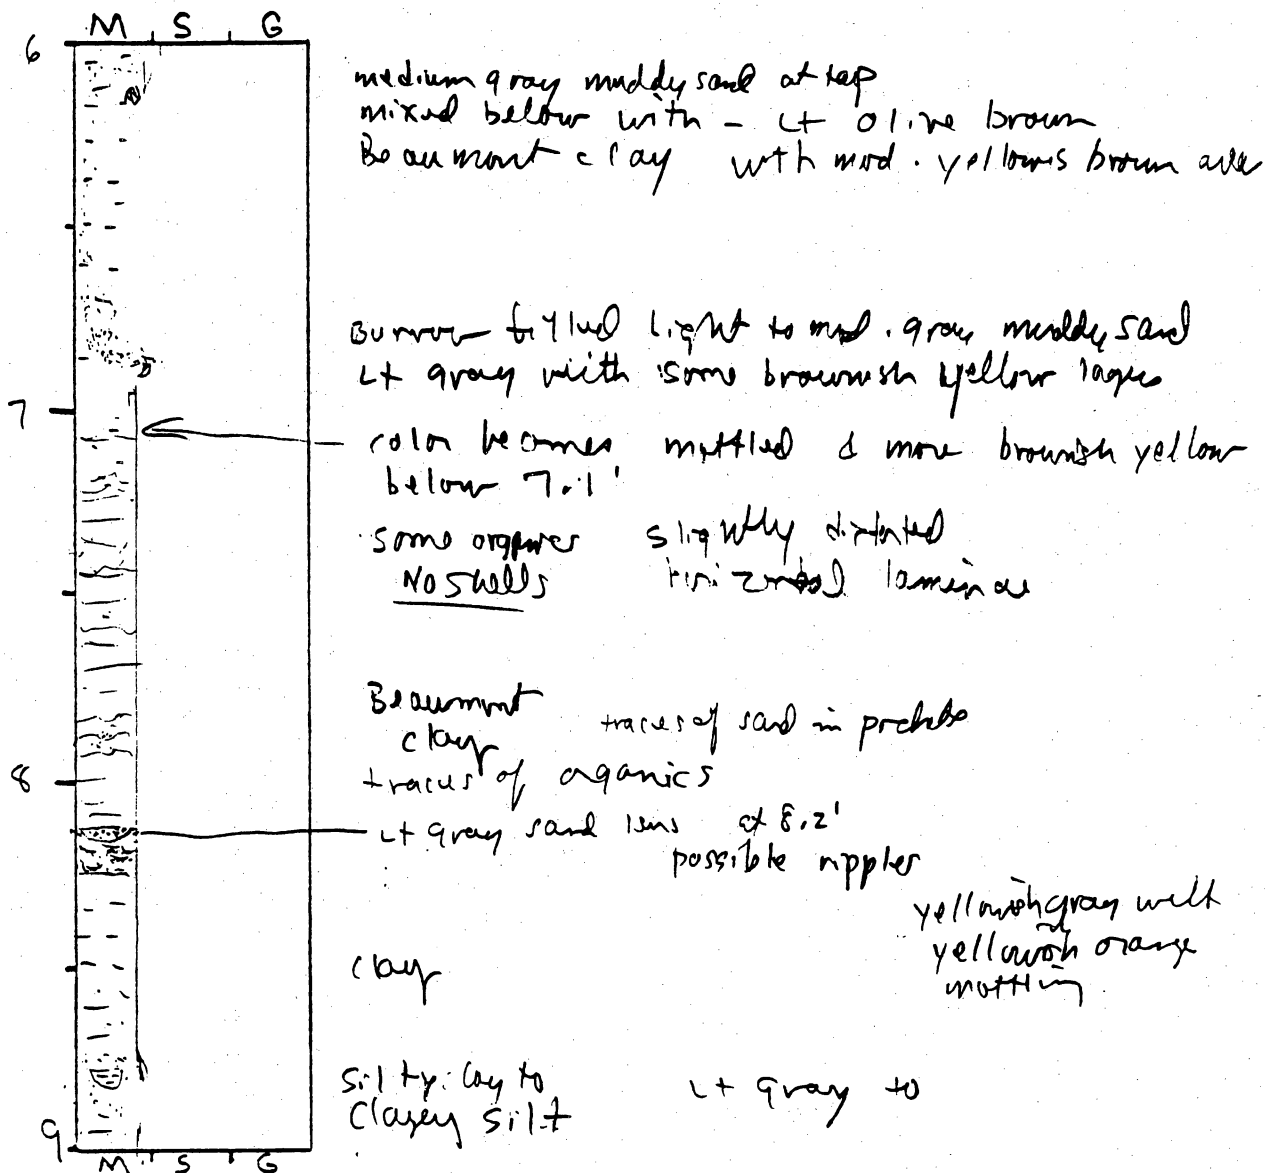 M S G
6
medium gray muddy sand at top
mixed below with - Lt olive brown
Beaumont clay with mod. yellowis brown
Burrow filled light to mod. gray muddy sand
Lt gray with some brownish yellow
7
color becomes mottled & more brownish yellow
below 7.1'
some organics slightly distorted
No shells horizontal laminae
Beaumont
clay traces of sand in
8
traces of organics
Lt gray sand lens at 8.2'
possible ripples
yellowish gray
yellowish orange
mottling
clay
silty clay to Lt gray to
Clayey silt
9
M S G